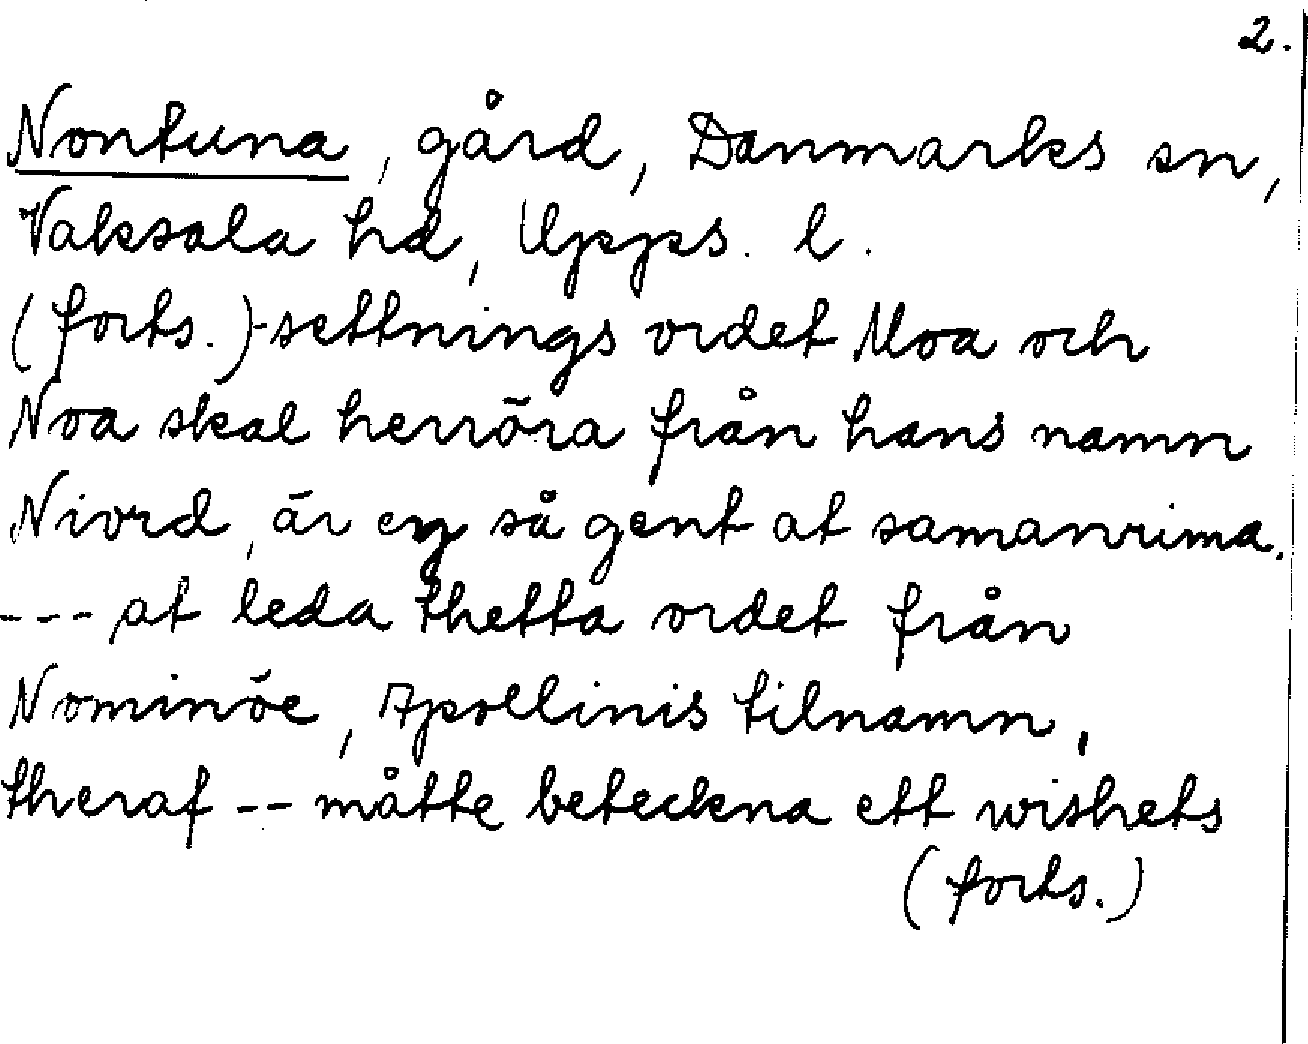 2.
Nontuna, gård, Danmarks sn,
Vaksala hd, Upps. l.
(forts.)-settnings ordet Moa och
Noa skal herröra från hans namn
Niord, är ey så gent at samanrima.
--- at leda thetta ordet från
Nominöe, Apollinis tilnamn,
theraf -- måtte beteckna ett wishets
(forts.)